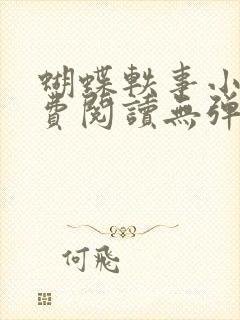 蝴蝶軼事小
費閱讀無彈
何飛